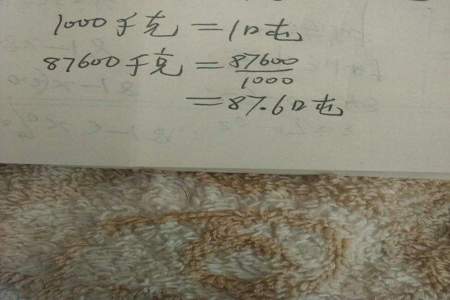 1000千克=1吨
87600千克=87600/1000
=87.6吨